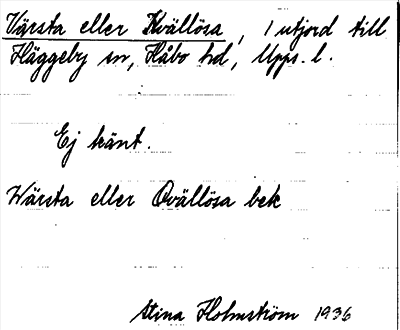 Värsta eller Kvällösa, 1 utjord till
Häggeby sn, Håbo hd, Upps. l.
Ej känt.
Wärsta eller Qvällösa bek
Stina Holmström 1936